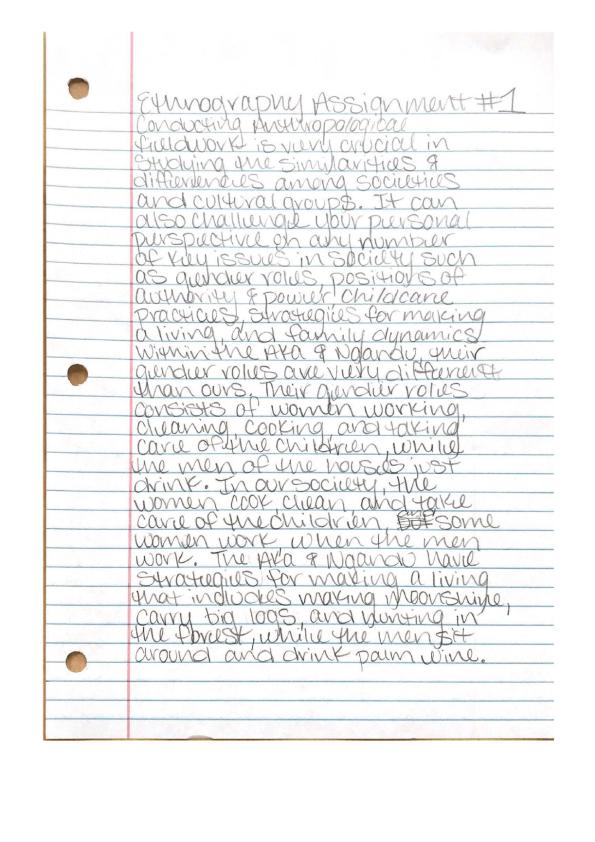 Ethnography Assignment #1
Conducting Anthropological
fieldwork is very crucial in
studying the similarities &
differences among societies
and cultural groups. It can
also challenge your personal
perspective on any number
of key issues in society such
as gender roles, positions of
authority & power, childcare
practices, strategies for making
a living, and family dynamics.
Within the Aka & Ngandu, their
gender roles are very different
than ours. Their gender roles
consists of women working,
cleaning, cooking, and taking
care of the children, while
the men of the houses just
drink. In our society, the
women cook, clean, and take
care of the children, and some
women work, when the men
work. The Aka & Ngandu have
strategies for making a living
that includes making moonshine,
carry big logs, and hunting in
the forest, while the men sit
around and drink palm wine.